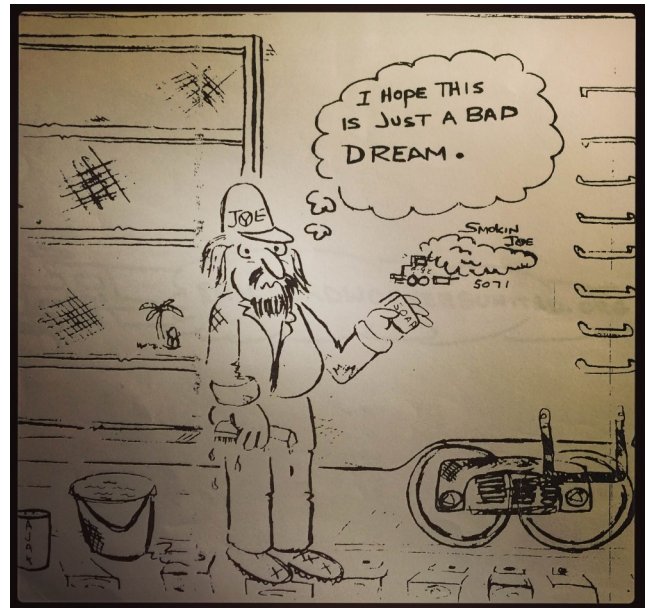 I HOPE THIS
IS JUST A BAD
DREAM.
JOE
SMOKIN
JOE
5071
SOAP
AJAX